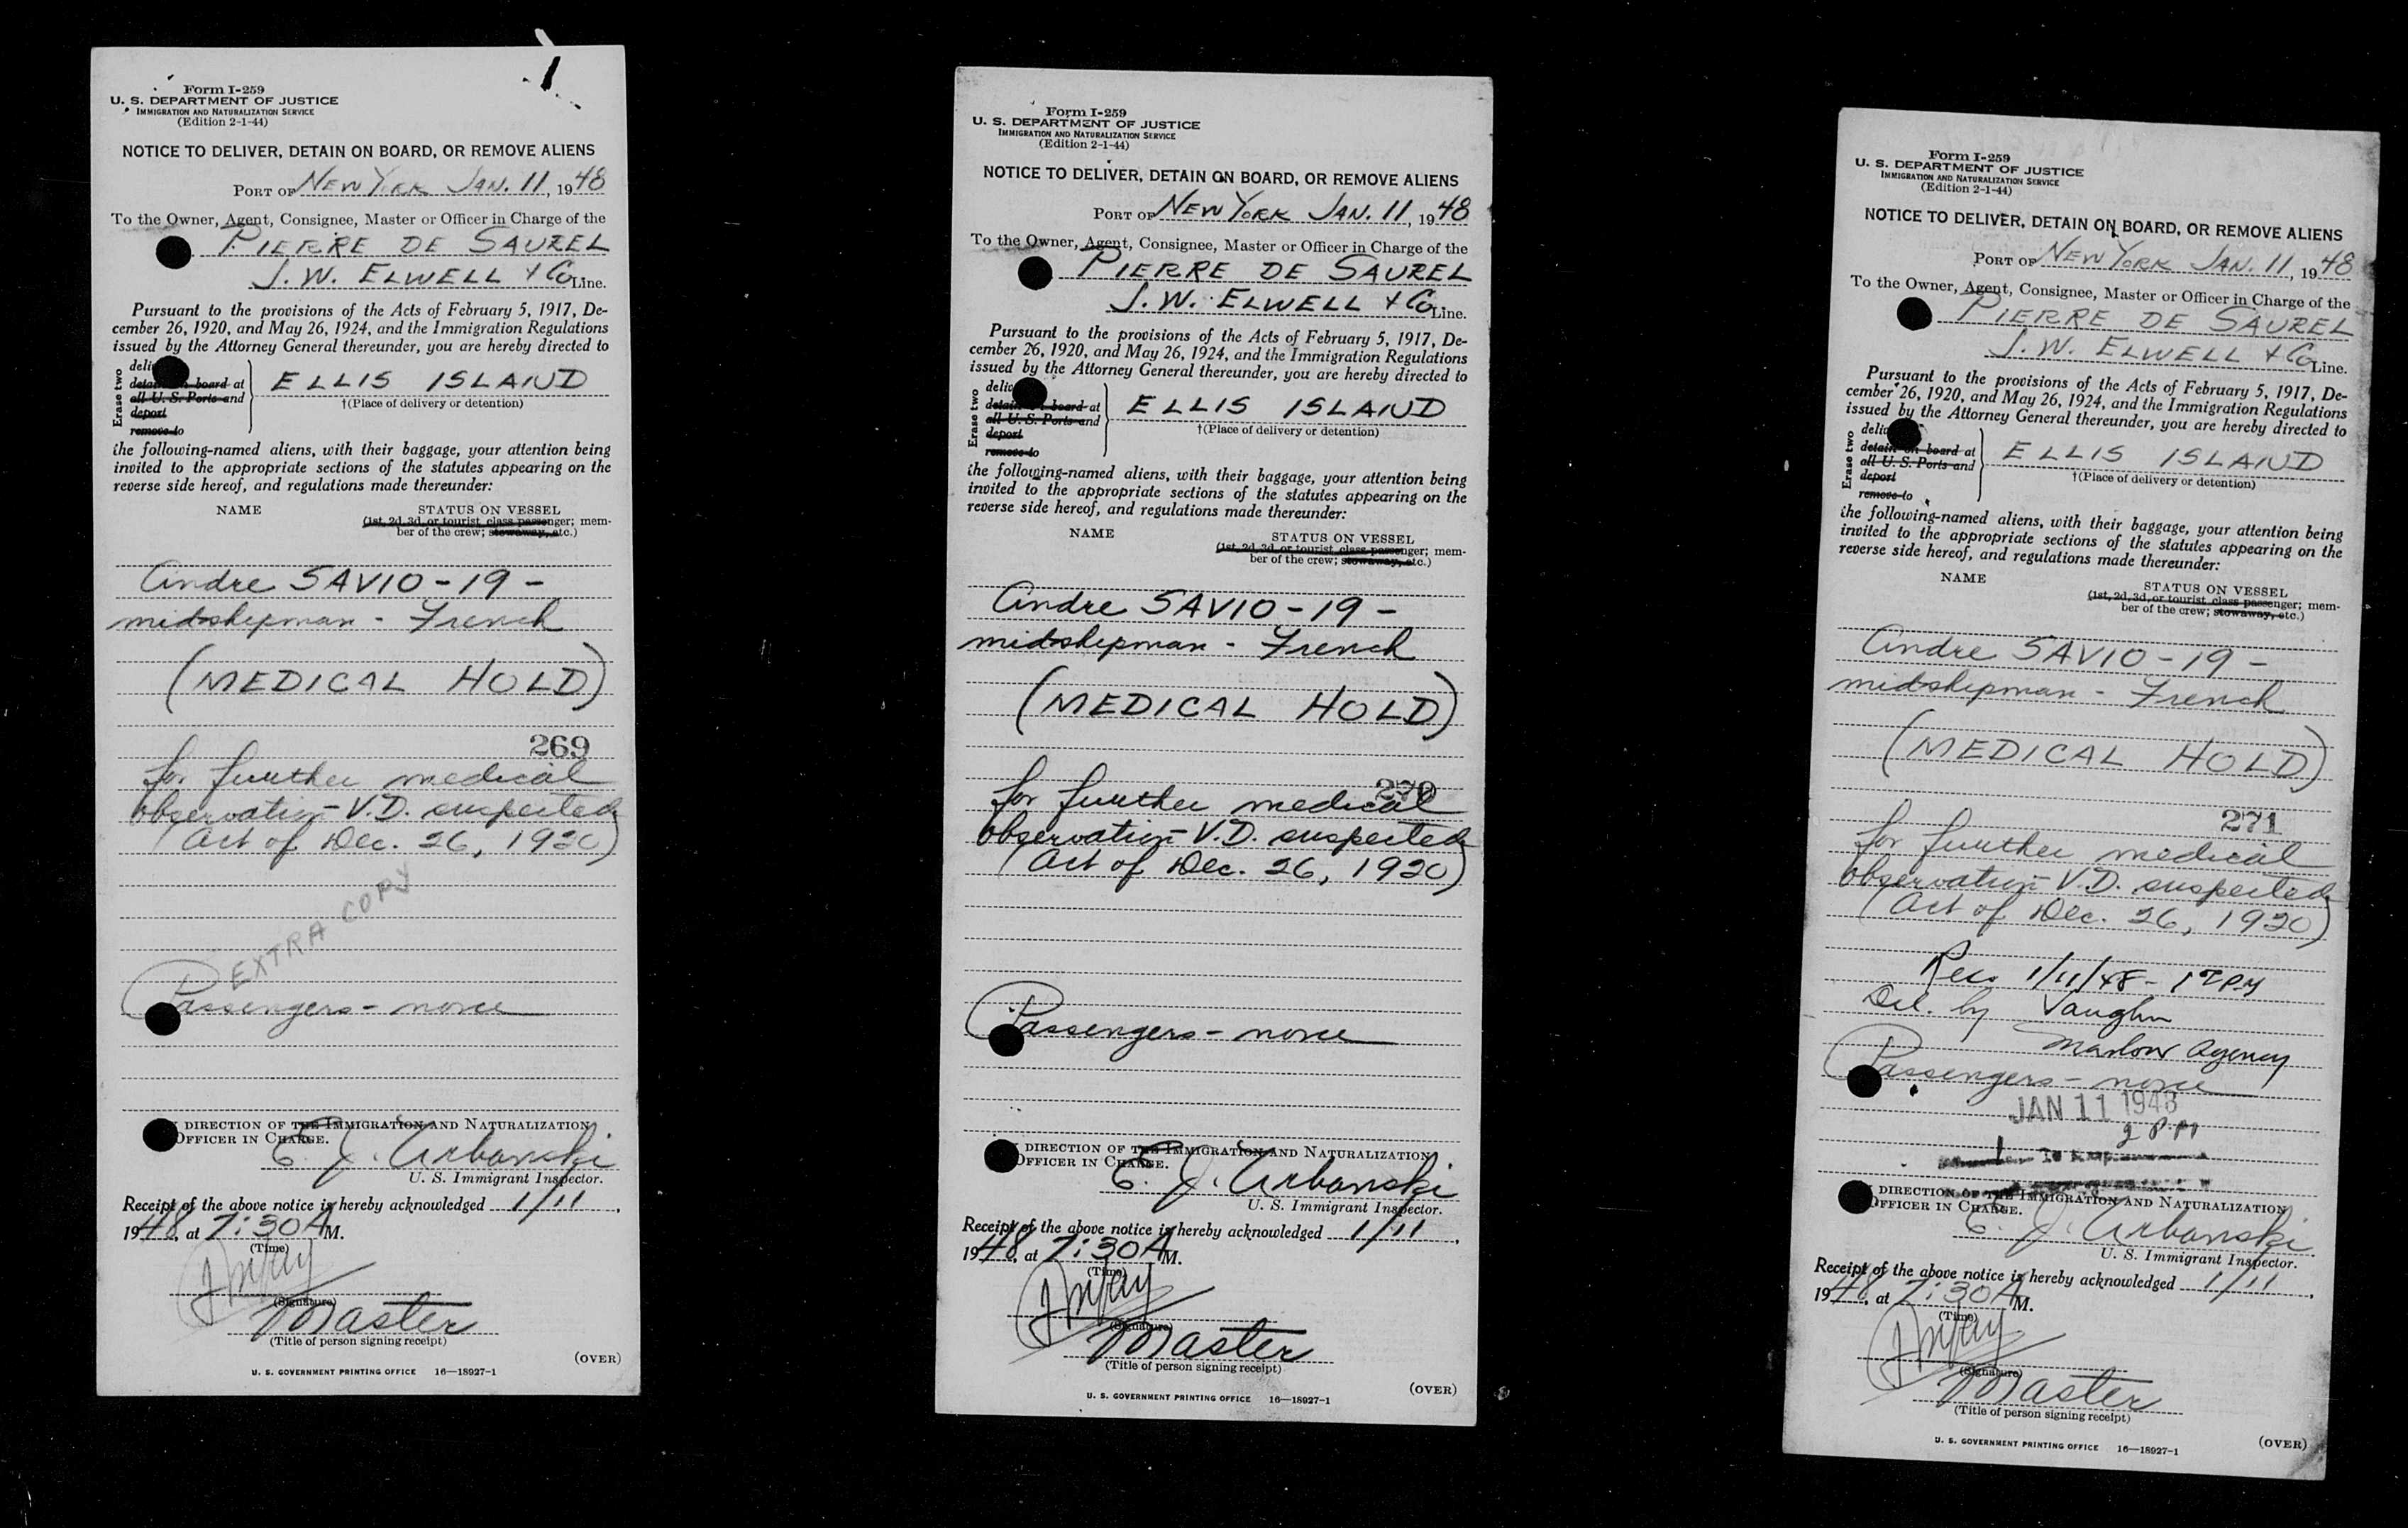 Form I-259
U. S. DEPARTMENT OF JUSTICE
IMMIGRATION AND NATURALIZATION SERVICE
(Edition 2-1-44)
NOTICE TO DELIVER, DETAIN ON BOARD, OR REMOVE ALIENS
PORT OF NEW YORK JAN. 11, 1948
To the Owner, Agent, Consignee, Master or Officer in Charge of the
PIERRE DE SAUREL
J. W. ELWELL + Co Line.
Pursuant to the provisions of the Acts of February 5, 1917, De-
cember 26, 1920, and May 26, 1924, and the Immigration Regulations
issued by the Attorney General thereunder, you are hereby directed to
Erase two
deli
detain on board at
all U. S. Ports and
deport
remove to
ELLIS ISLAND
†(Place of delivery or detention)
the following-named aliens, with their baggage, your attention being
invited to the appropriate sections of the statutes appearing on the
reverse side hereof, and regulations made thereunder:
NAME STATUS ON VESSEL
(1st, 2d, 3d, or tourist class passenger; mem-
ber of the crew; stowaway, etc.)
Andre SAVIO - 19 -
midshipman - French
(MEDICAL HOLD)
269
for further medical
observation - V.D. suspected
(Act of Dec. 26, 1920)
EXTRA COPY
Passengers - none
DIRECTION OF THE IMMIGRATION AND NATURALIZATION
OFFICER IN CHARGE.
E. J. Urbanski
U. S. Immigrant Inspector.
Receipt of the above notice is hereby acknowledged 1/11,
1948, at 7:30 AM.
(Time)
(Signature)
Master
(Title of person signing receipt)
(OVER)
U. S. GOVERNMENT PRINTING OFFICE 16—18927-1
Form I-259
U. S. DEPARTMENT OF JUSTICE
IMMIGRATION AND NATURALIZATION SERVICE
(Edition 2-1-44)
NOTICE TO DELIVER, DETAIN ON BOARD, OR REMOVE ALIENS
PORT OF NEW YORK JAN. 11, 1948
To the Owner, Agent, Consignee, Master or Officer in Charge of the
PIERRE DE SAUREL
J. W. ELWELL + Co Line.
Pursuant to the provisions of the Acts of February 5, 1917, De-
cember 26, 1920, and May 26, 1924, and the Immigration Regulations
issued by the Attorney General thereunder, you are hereby directed to
Erase two
deli
detain on board at
all U. S. Ports and
deport
remove to
ELLIS ISLAND
†(Place of delivery or detention)
the following-named aliens, with their baggage, your attention being
invited to the appropriate sections of the statutes appearing on the
reverse side hereof, and regulations made thereunder:
NAME STATUS ON VESSEL
(1st, 2d, 3d, or tourist class passenger; mem-
ber of the crew; stowaway, etc.)
Andre SAVIO - 19 -
midshipman - French
(MEDICAL HOLD)
270
for further medical
observation - V.D. suspected
(Act of Dec. 26, 1920)
Passengers - none
DIRECTION OF THE IMMIGRATION AND NATURALIZATION
OFFICER IN CHARGE.
E. J. Urbanski
U. S. Immigrant Inspector.
Receipt of the above notice is hereby acknowledged 1/11,
1948, at 7:30 AM.
(Time)
(Signature)
Master
(Title of person signing receipt)
(OVER)
U. S. GOVERNMENT PRINTING OFFICE 16—18927-1
Form I-259
U. S. DEPARTMENT OF JUSTICE
IMMIGRATION AND NATURALIZATION SERVICE
(Edition 2-1-44)
NOTICE TO DELIVER, DETAIN ON BOARD, OR REMOVE ALIENS
PORT OF NEW YORK JAN. 11, 1948
To the Owner, Agent, Consignee, Master or Officer in Charge of the
PIERRE DE SAUREL
J. W. ELWELL + Co Line.
Pursuant to the provisions of the Acts of February 5, 1917, De-
cember 26, 1920, and May 26, 1924, and the Immigration Regulations
issued by the Attorney General thereunder, you are hereby directed to
Erase two
deli
detain on board at
all U. S. Ports and
deport
remove to
ELLIS ISLAND
†(Place of delivery or detention)
the following-named aliens, with their baggage, your attention being
invited to the appropriate sections of the statutes appearing on the
reverse side hereof, and regulations made thereunder:
NAME STATUS ON VESSEL
(1st, 2d, 3d, or tourist class passenger; mem-
ber of the crew; stowaway, etc.)
Andre SAVIO - 19 -
midshipman - French
(MEDICAL HOLD)
271
for further medical
observation - V.D. suspected
(Act of Dec. 26, 1920)
Rec. 1/11/48 - PM
Del. by Vaughn
Marlow Agency
Passengers - none
JAN 11 1948
2 PM
DIRECTION OF THE IMMIGRATION AND NATURALIZATION
OFFICER IN CHARGE.
E. J. Urbanski
U. S. Immigrant Inspector.
Receipt of the above notice is hereby acknowledged 1/11,
1948, at 7:30 AM.
(Time)
(Signature)
Master
(Title of person signing receipt)
(OVER)
U. S. GOVERNMENT PRINTING OFFICE 16—18927-1